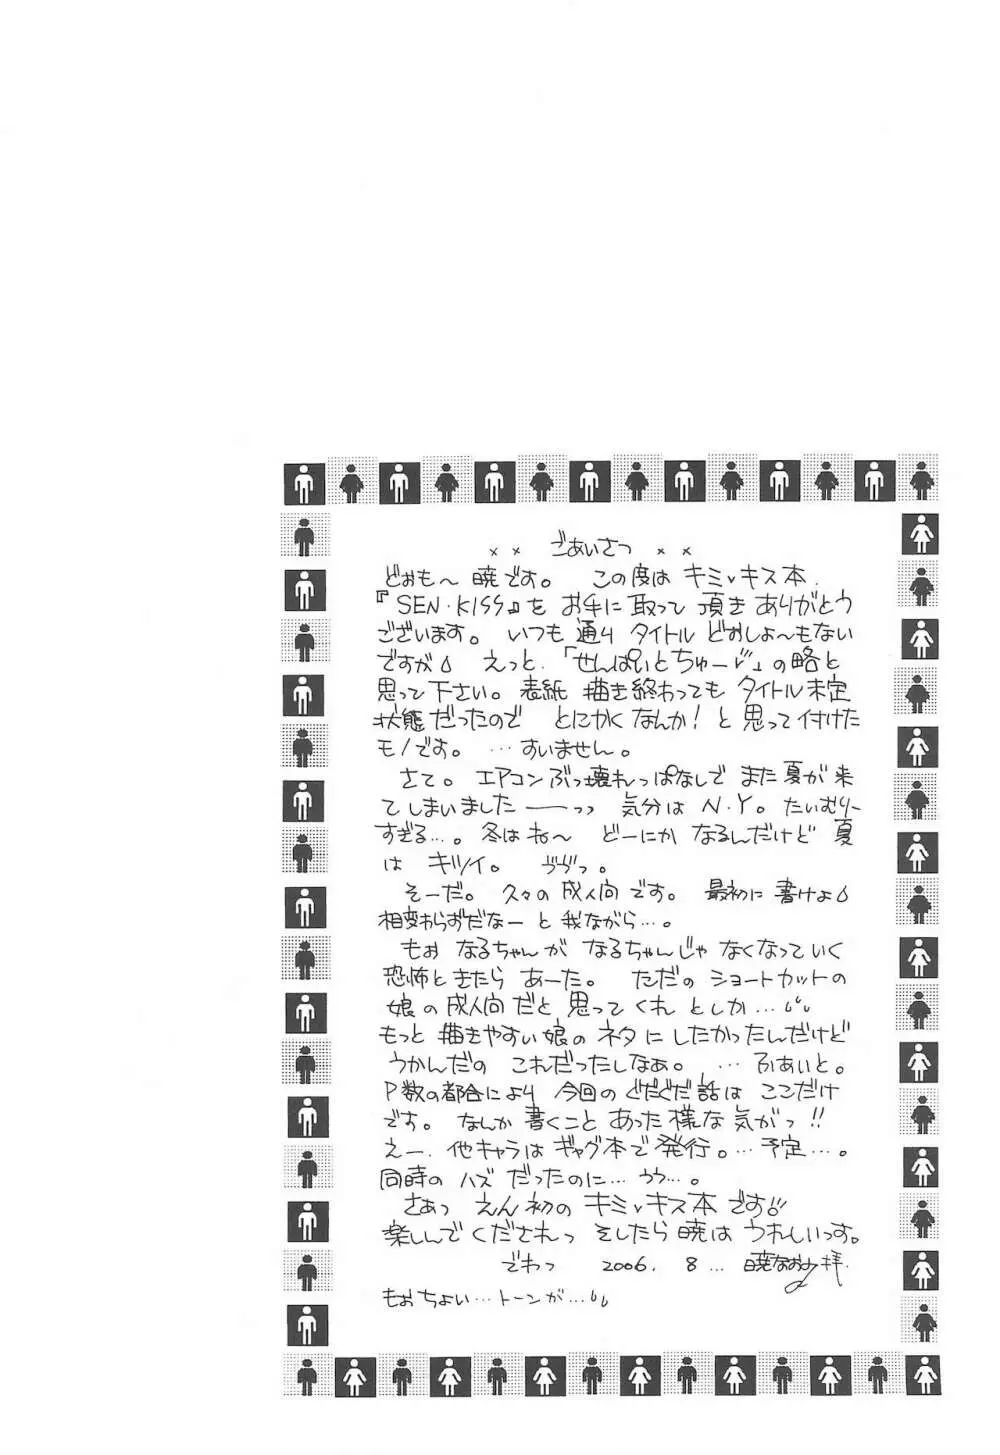 ×× ごあいさつ ××
どぉも〜 暁です。 この度は キミ♥キス本.
『SEN・KISS』を お手に 取って 頂き ありがとう
ございます。 いつも 通り タイトル どおしょ〜もない
ですが えっと.「せんぱいとちゅーッ」の略と
思って下さい。表紙 描き終わっても タイトル未定
状態だったので とにかくなんか!と思って付けた
モノです。…すいません。
さて。エアコンぶっ壊れっぱなしで また夏が来
てしまいました――っっ 気分は N・Y。たいむりー
すぎる…。冬はね〜 どーにか なるんだけど 夏
は キツイ。 ゔゔっ。
そーだ。久々の成人向です。 最初に 書けよ
相変わらずだなー と 我ながら…。
もぉ なるちゃんが なるちゃんじゃ なくなっていく
恐怖ときたら あーた。 ただの ショートカットの
娘の成人向だと 思ってくれ としか…
もっと 描きやすい娘の ネタ にしたかったんだけど
うかんだの これだったしなぁ。 … ふぁいと。
P数の都合により 今回の どだぐだ話は ここだけ
です。なんか 書くこと あった様な気がっ!!
えー. 他キャラは ギャグ本で発行。…予定…。
同時の ハズ だったのに… うう…。
さぁっ えん初の キミ♥キス本 です
楽しんで くだされっ そしたら 暁は うれしいっす。
でわっ 2006. 8 … 暁なおみ 拝.
もぉちょい…トーンが…